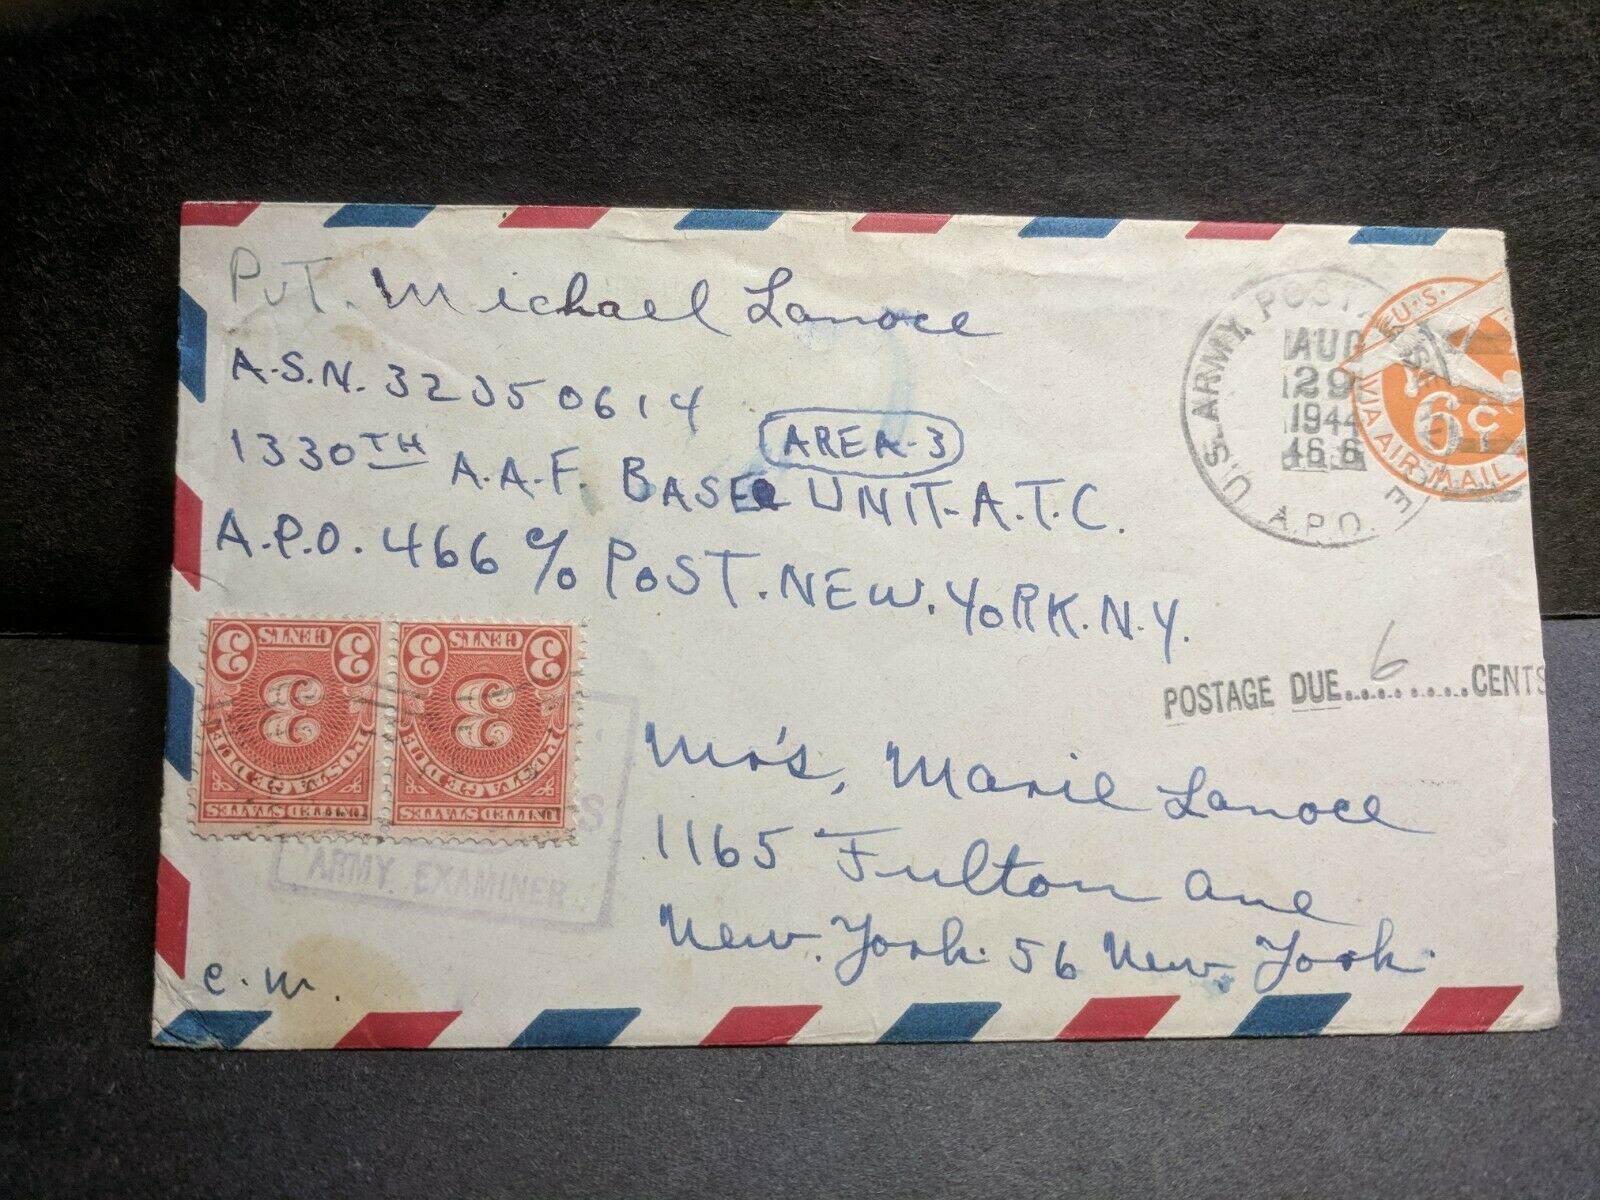 Pvt. Michael Lanoce
A.S.N. 32350614
AREA-3
1330TH A.A.F. BASE UNIT-A.T.C.
A.P.O. 466 c/o POST. NEW. YORK. N.Y.
U.S. ARMY POST
A.P.O.
AUG
29
1944
466
U.S.
6c
VIA AIR MAIL
POSTAGE DUE.... 6 ....CENTS
3 CENTS 3
3
POSTAGE DUE
UNITED STATES
3 CENTS 3
3
POSTAGE DUE
UNITED STATES
ARMY EXAMINER
Mrs, Marie Lanoce
1165 Fulton ave
New. York. 56 New. York.
c. m.